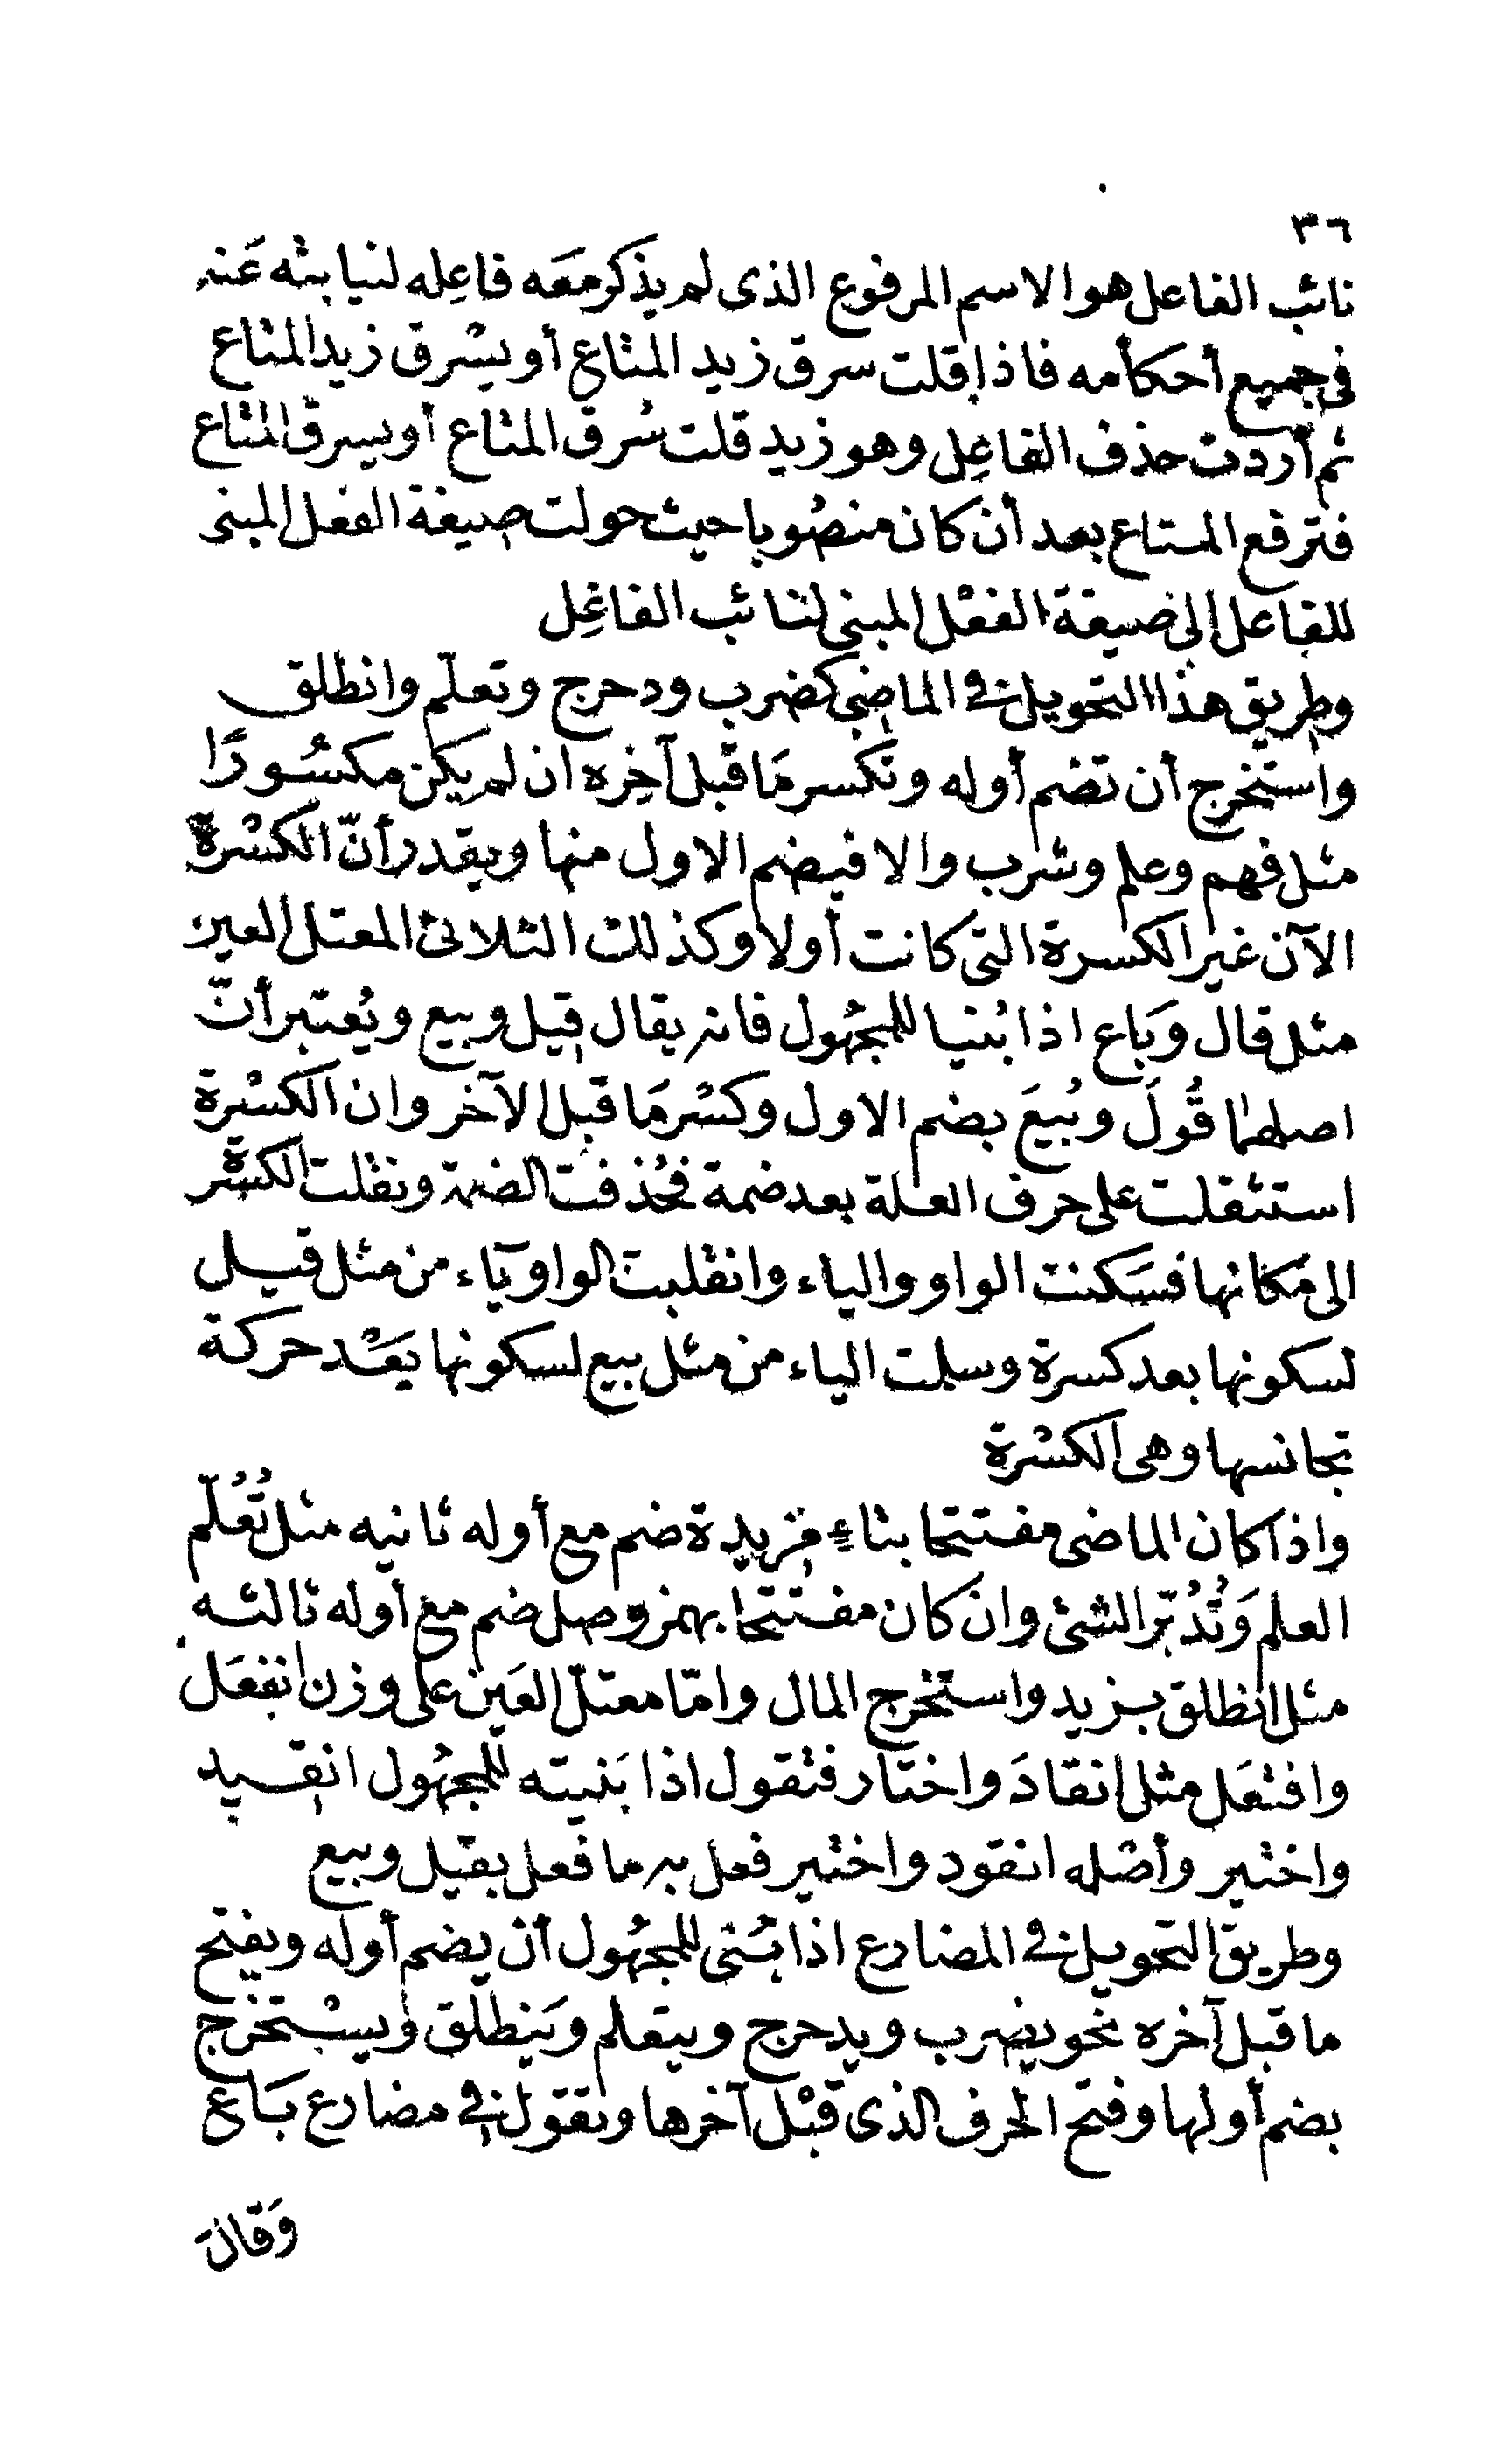 ٣٦
نائب الفاعل هو الاسم المرفوع الذى لم يذكر معَه فاعِله لنيابته عَنه
فى جميع أحكامه فاذا قلت سرق زيد المتاع أو يسْرق زيد المتاع
ثم أردت حذف الفاعِل وهو زيد قلت سُرق المتاع أو يسرق المتاع
فترفع المتاع بعد أن كان منصُوبا حيث حولت صيغة الفعل المبنى
للفاعل الى صيغة الفعْل المبنى لنائب الفاعِل
وطريق هذا التحويل فى الماضى كضرب ودحرج وتعلّم وانطلق
واستخرج أن تضم أوله وتكسر مَا قبل آخِره ان لم يكن مكسُورًا
مثل فهم وعلم وشرب والا فيضم الاول منها ويقدر أنّ الكسْرة
الآن غير الكسرة التى كانت أولا وكذلك الثلاثى المعتل العين
مثل قال وَبَاع اذا بُنيا للمجهُول فانه يقال قِيل وبيع ويُعتبر أنّ
اصلهما قُوِلَ وبُيِعَ بضم الاول وكسْر مَا قبل الآخر وان الكسْرة
استثقلت على حرف العلة بعد ضمة فحُذفت الضمة ونقلت الكسْرة
الى مَكانها فسَكنت الواو والياء وانقلبت الواو يَاء من مثل قيل
لسكونها بعد كسرة وسلمت الياء من مثل بيع لسكونها بعَد حركة
تجانسها وهى الكسْرة
واذا كان الماضى مفتتحا بتاءٍ مزيدة ضم مع أوله ثانيه مثل تُعُلّم
العلم وَتُدُبّر الشئ وان كان مفتتحا بهمز وصل ضم مع أوله ثالثه
مثل انطلق بزيد واستخرج المال وامّا معتلّ العَين على وزن انفعَل
وافتعَل مثل انقادَ واختار فتقول اذا بَنيته للمجهُول انقيد
واختير وأصْله انقود واختير فعل به ما فعل بقيل وبيع
وطريق التحويل فى المضارع اذا بُنى للمجهُول أن يضم أوله ويفتح
ما قبل آخره نحو يضرب ويدحرج ويتعلم وَينطلق ويسْتخرج
بضم أولها وفتح الحرف الذى قبْل آخرها وتقول فى مضارع بَاع
وَقالَ